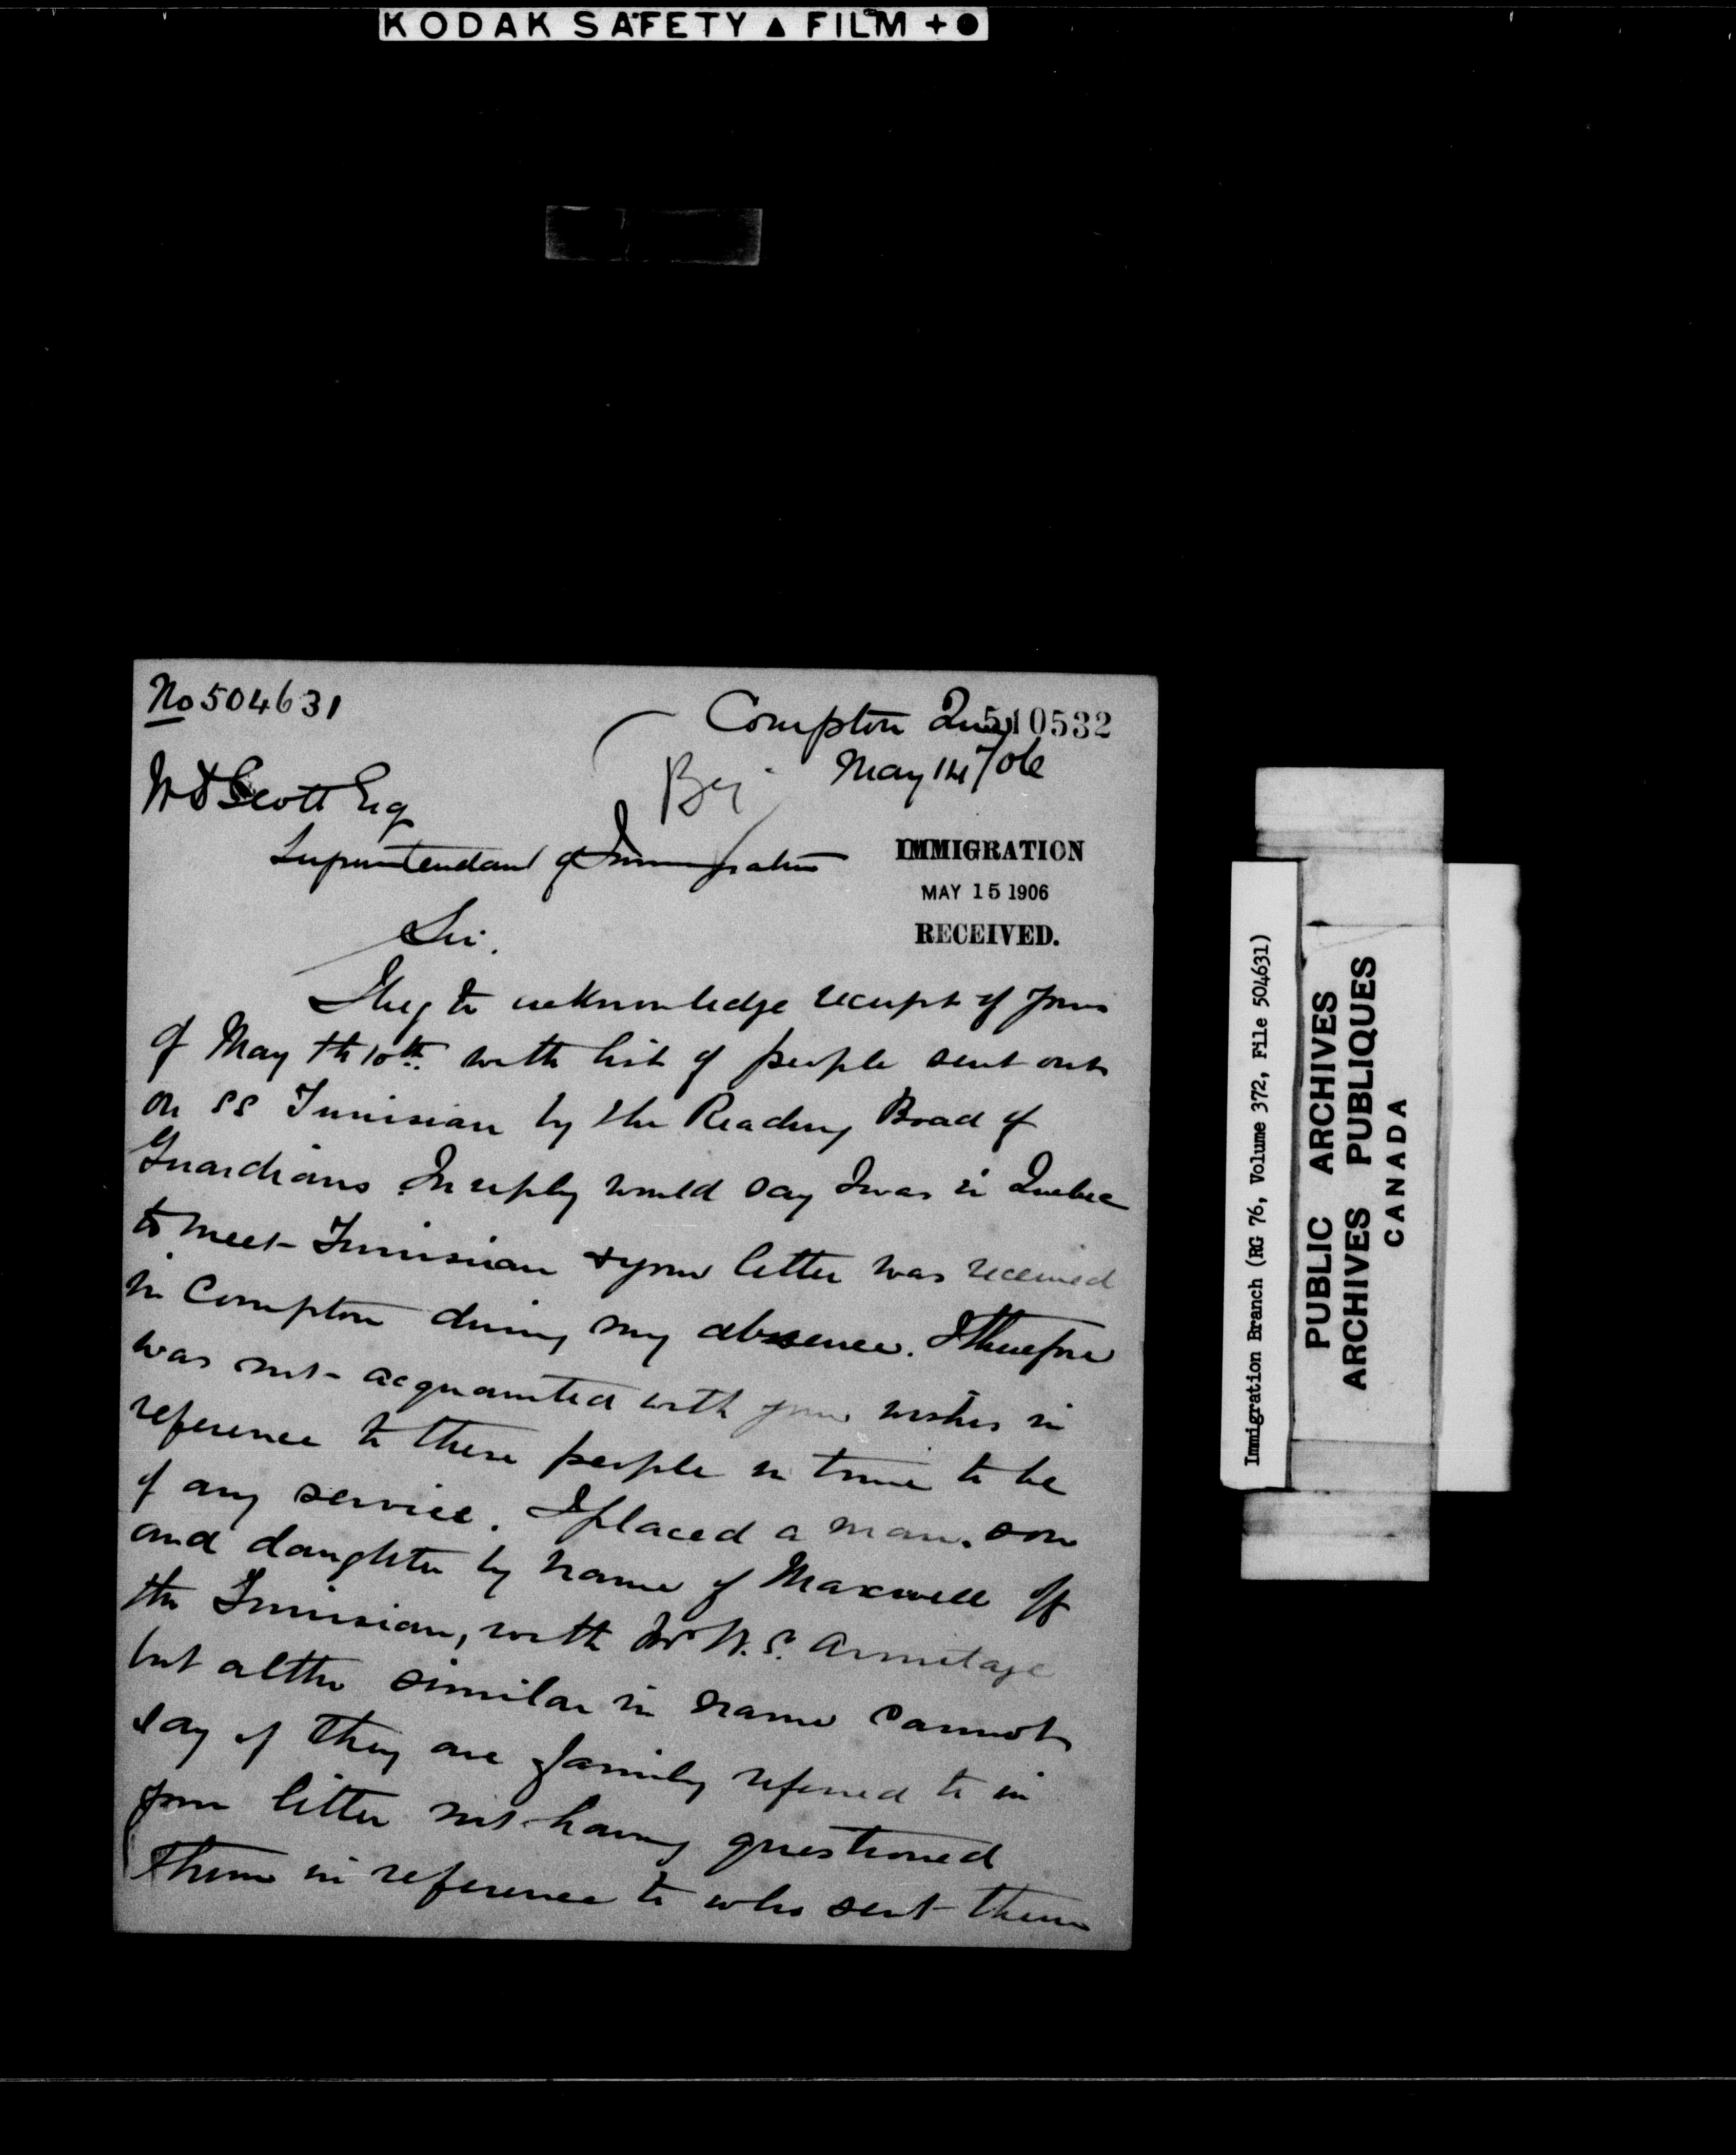 KODAK SAFETY ▲ FILM + ●
No 504631
Compton Que
510532
May 14/06
W D Scott Esq
Superintendant of Immigration
IMMIGRATION
MAY 15 1906
RECEIVED.
Sir.
I beg to acknowledge receipt of yours
of May th 10th. with list of people sent out
on SS Tunisian by the Reading Board of
Guardians. In reply would say I was in Quebec
to meet Tunisian & your letter was received
in Compton during my absence. I therefore
was not acquainted with your wishes in
reference to these people in time to be
of any service. I placed a man. son
and daughter by name of Maxwell off
the Tunisian, with Mr W. S. Armitage
but altho similar in name cannot
say if they are family referred to in
your letter not having questioned
them in reference to who sent them
Immigration Branch (RG 76, Volume 372, File 504631)
PUBLIC ARCHIVES
ARCHIVES PUBLIQUES
CANADA